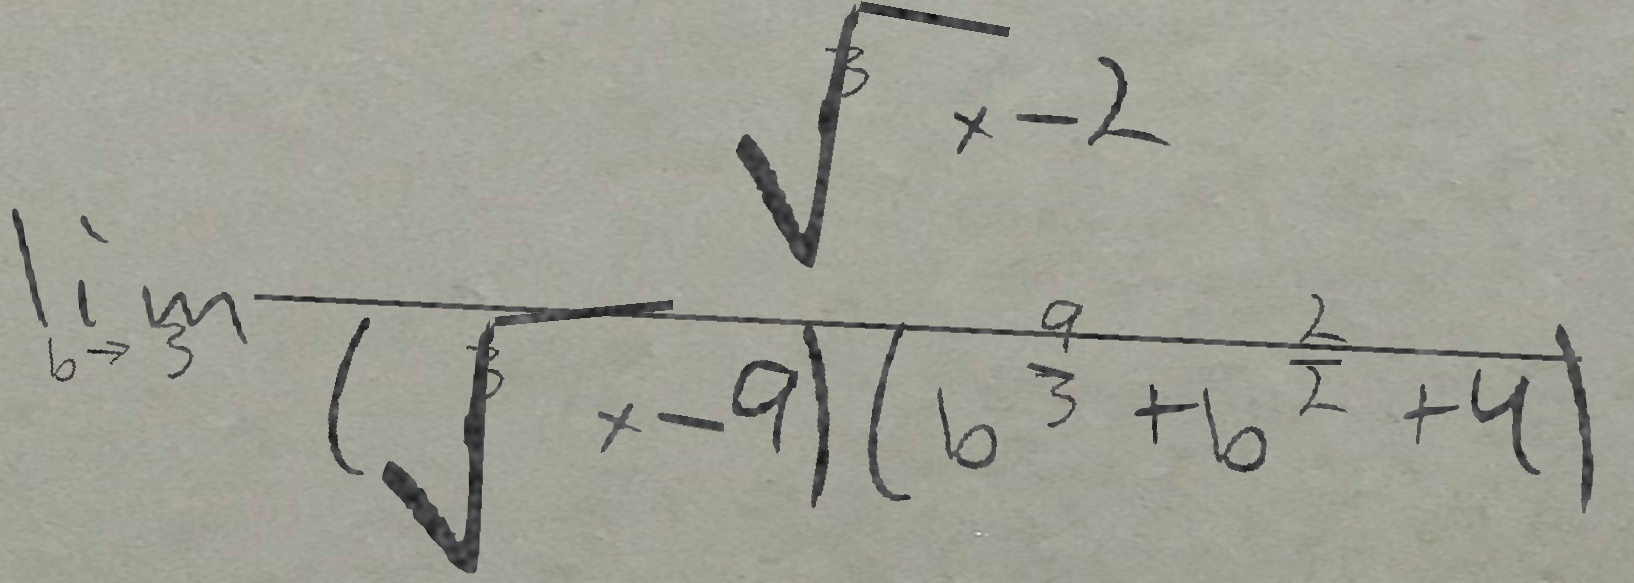 \lim_{b \to 3} \frac{\sqrt[3]{x} - 2}{(\sqrt[3]{x} - 9)(b^{\frac{9}{3}} + b^{\frac{2}{2}} + 4)}